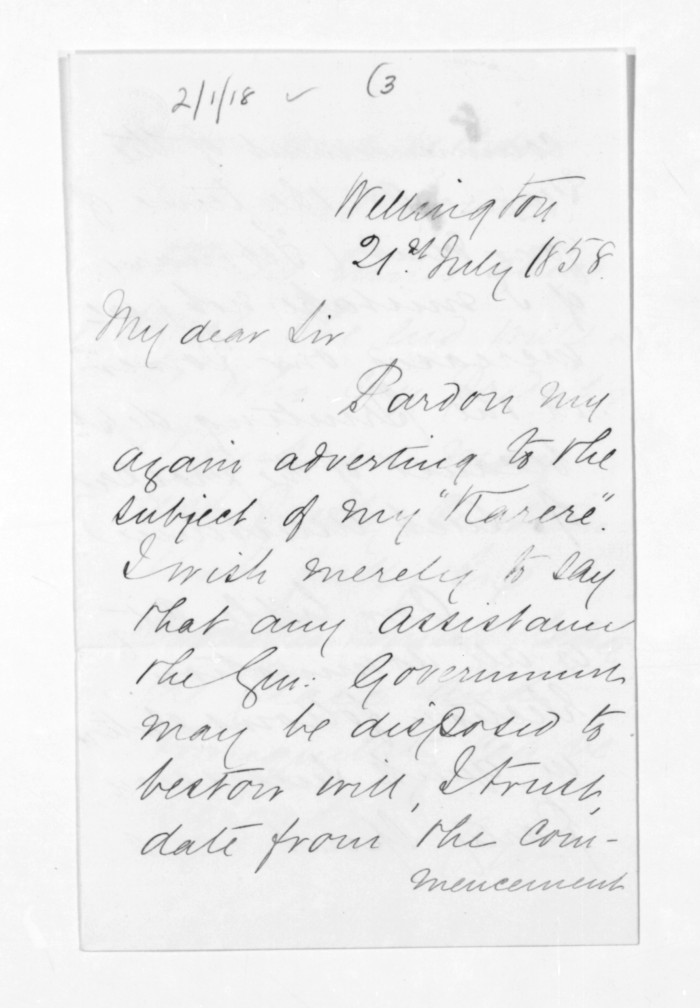 2/1/18 ✓ (3
Wellington
21st July 1858.
My dear Sir
Pardon my
again adverting to the
subject of my "Karere".
I wish merely to say
that any assistance
the Gen: Government
may be disposed to
bestow will, I trust,
date from the com-
mencement